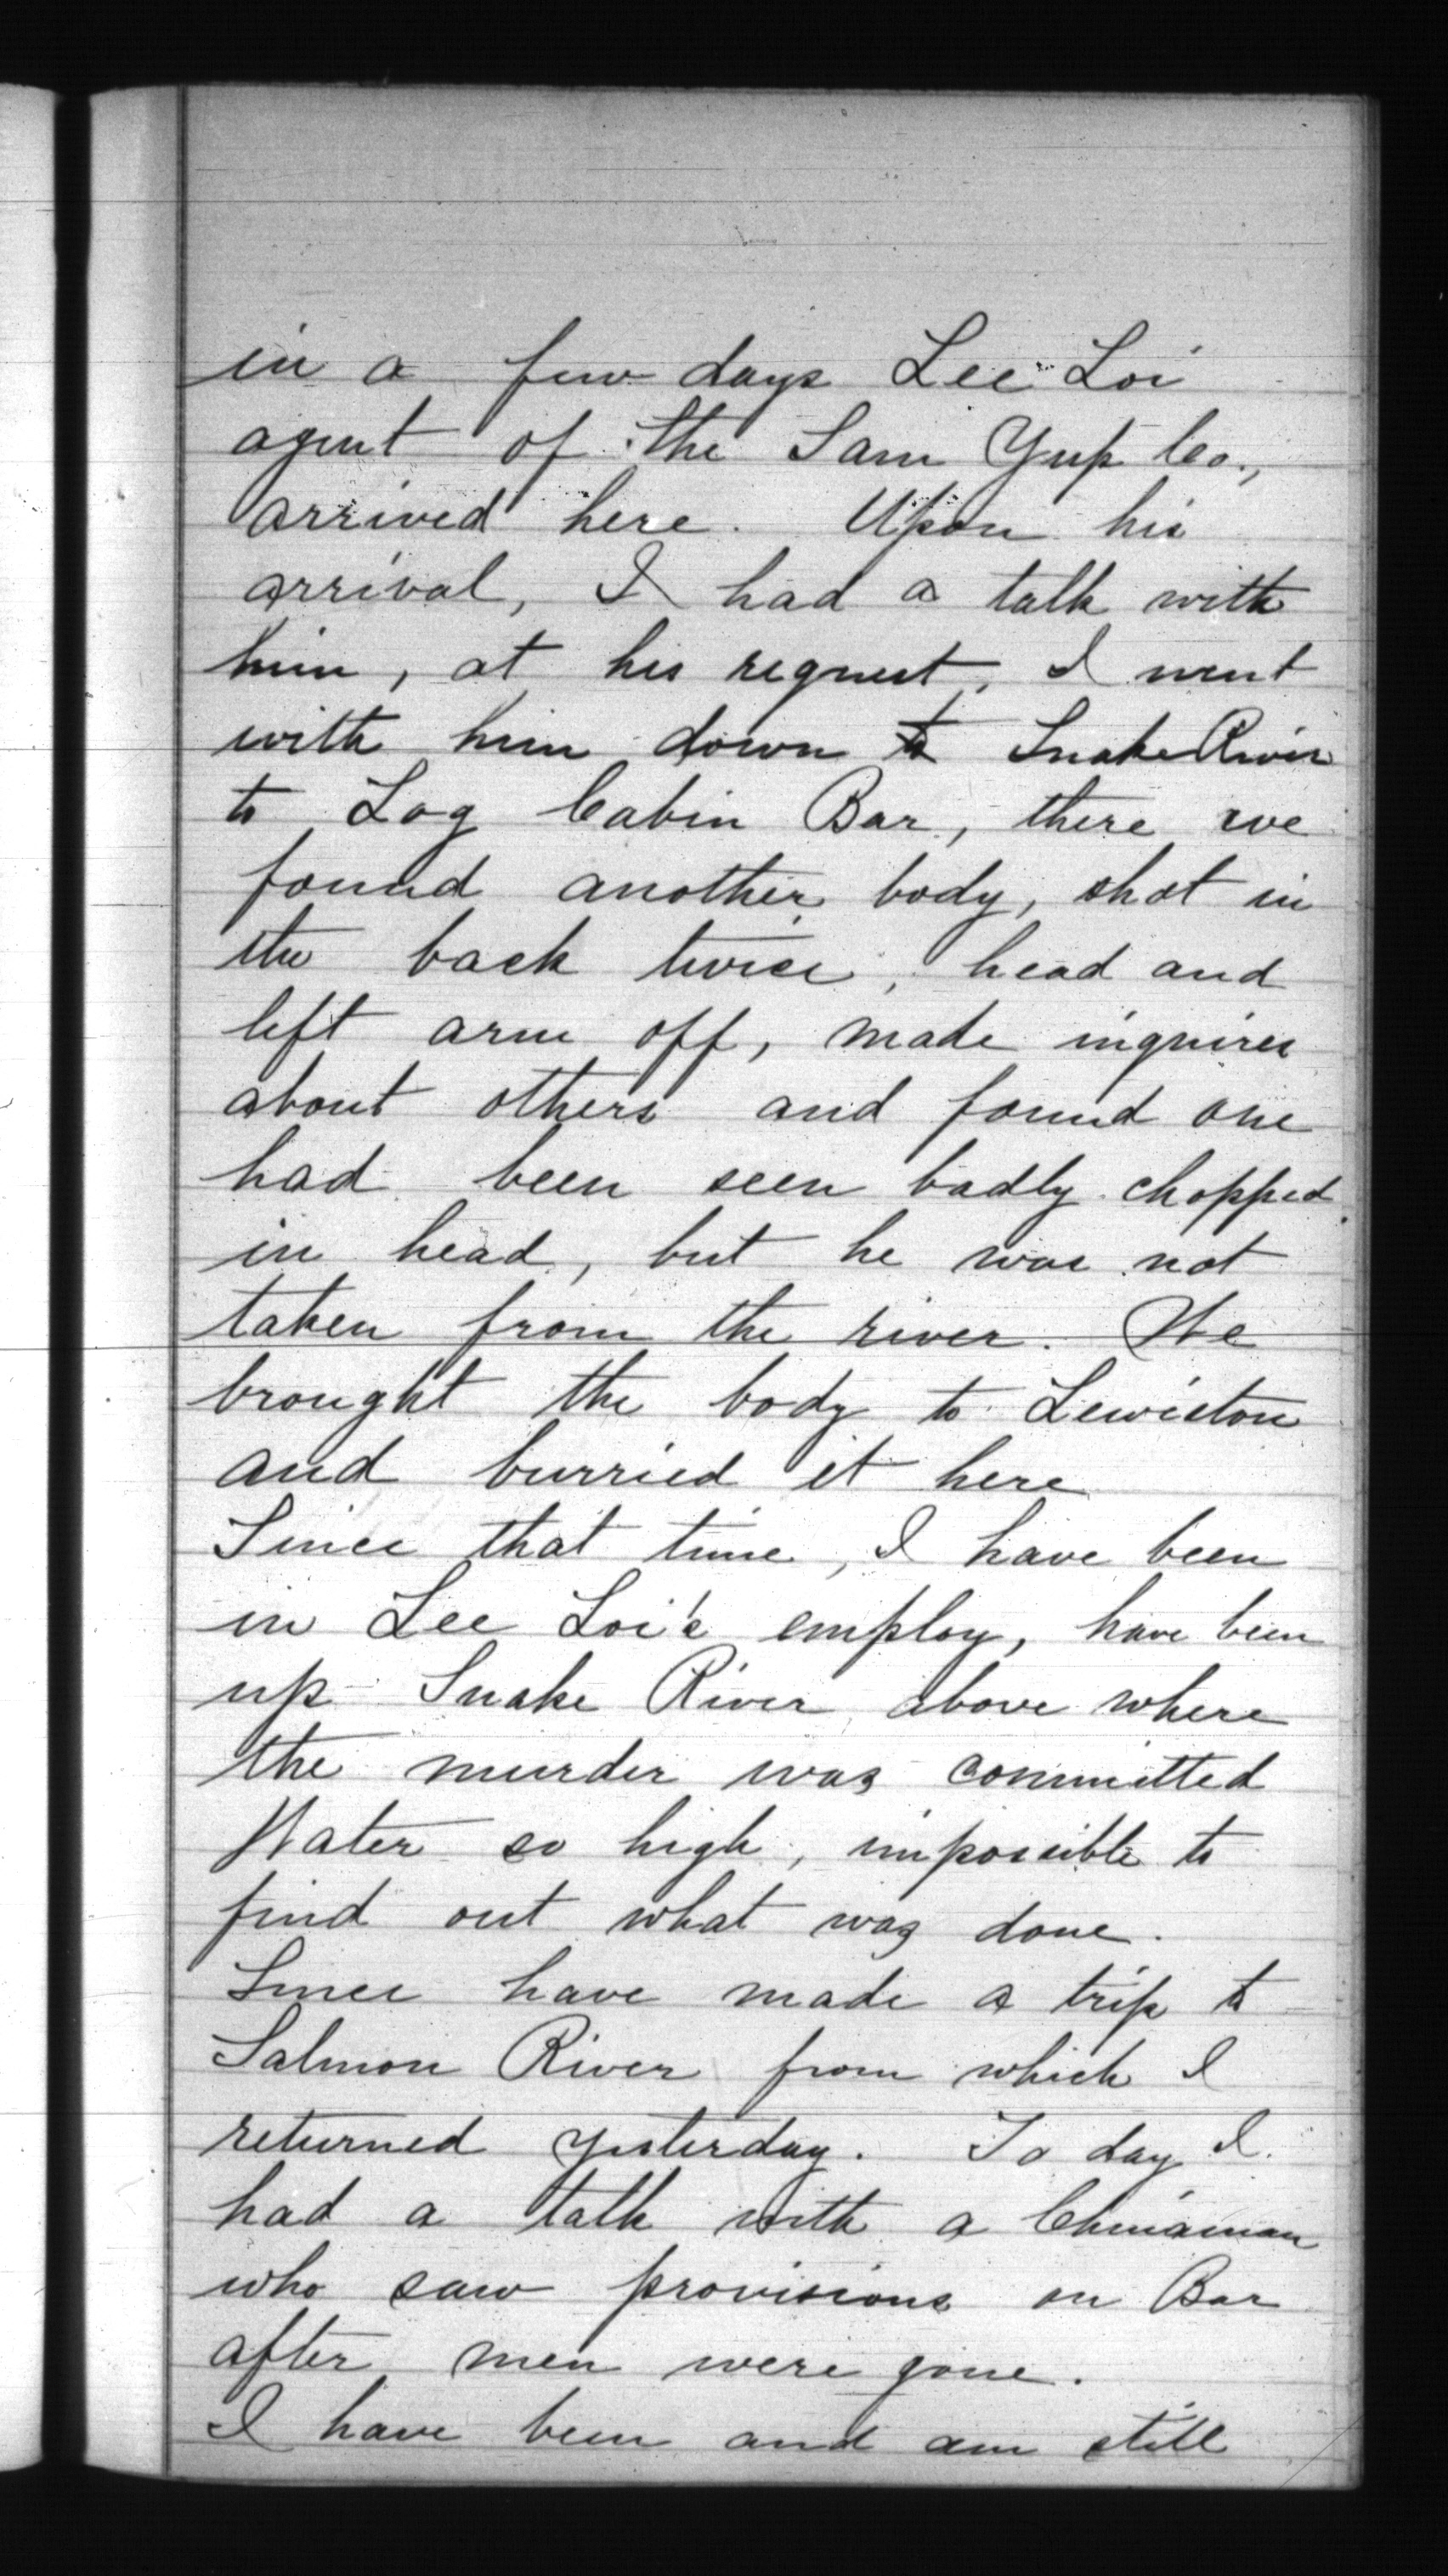 in a few days Lee Loi
agent of the Sam Yup Co.,
arrived here. Upon his
arrival, I had a talk with
him, at his request, I went
with him down to Snake River
to Log Cabin Bar, there we
found another body, shot in
the back twice, head and
left arm off, made inquires
about others and found one
had been seen badly chopped
in head, but he was not
taken from the river. We
brought the body to Lewiston
and burried it here
Since that time, I have been
in Lee Loi's employ, have been
up Snake River above where
the murder was committed
Water so high, impossible to
find out what was done.
Since have made a trip to
Salmon River from which I
returned yesterday. To day I
had a talk with a Chinaman
who saw provisions on Bar
after men were gone.
I have been and am still